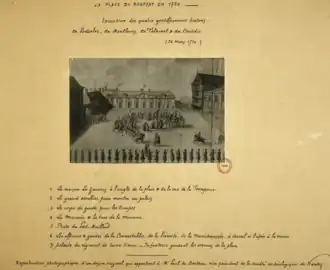 LA PLACE DU BOUFFAY EN 1720
Exécution des quatre gentilshommes bretons
de Pontcallec, de Montlouis, de Talhouët & du Couëdic
(26 Mars 1720)
1 La maison Le Gouvray à l'angle de la place & de la rue de
2 Le grand escalier pour monter au palais
3 Le corps de garde pour les troupes
4 La Monnaie & la tour de la monnaie
5 Poste de
6 Les officiers & gardes de la Connétablie, de la Prévôté, de la Maréchaussée, à cheval & l'épée à la main
7 soldats du régiment de infanterie gardant les avenues de la place
Reproduction photographique d'un dessin original qui appartenait à Mr Paul de vice président de la société archéologique de Nantes